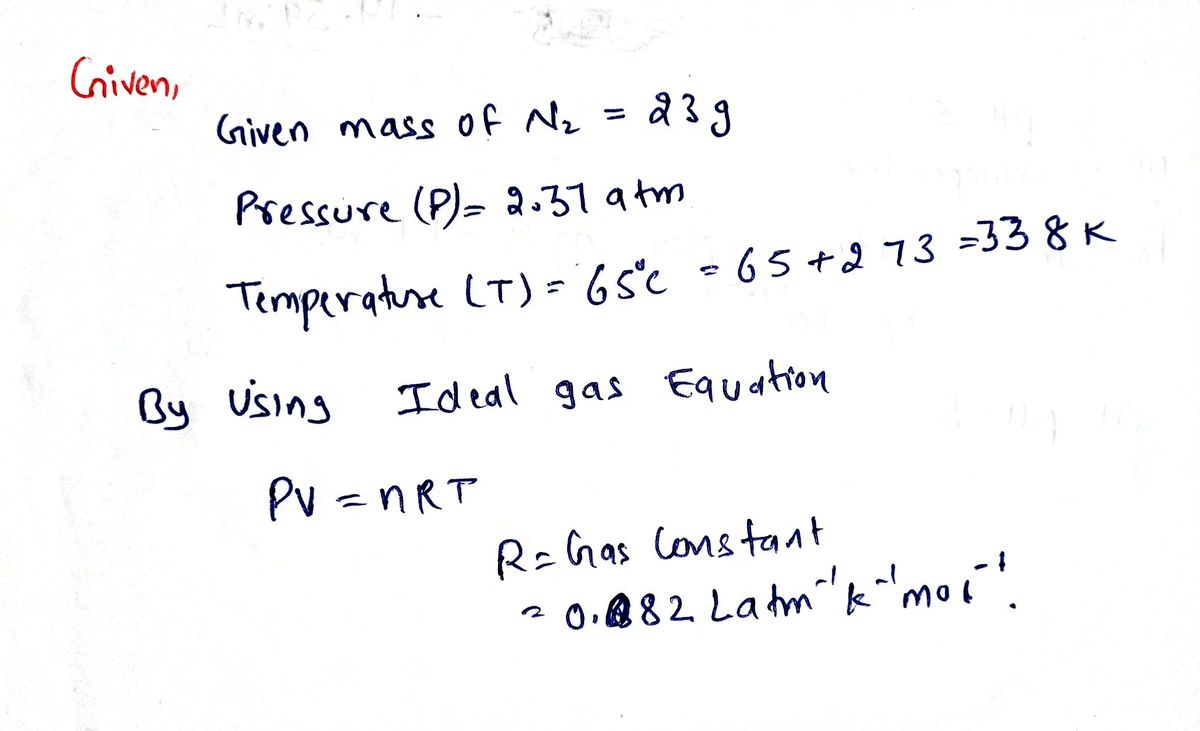 Given,
Given mass of N₂ = 23g
Pressure (P)= 2.37 atm
Temperature (T) = 65°C = 65+273 =338 K
By Using Ideal gas Equation
PV = nRT
R= Gas Constant
= 0.082 Latm⁻¹k⁻¹mol⁻¹.